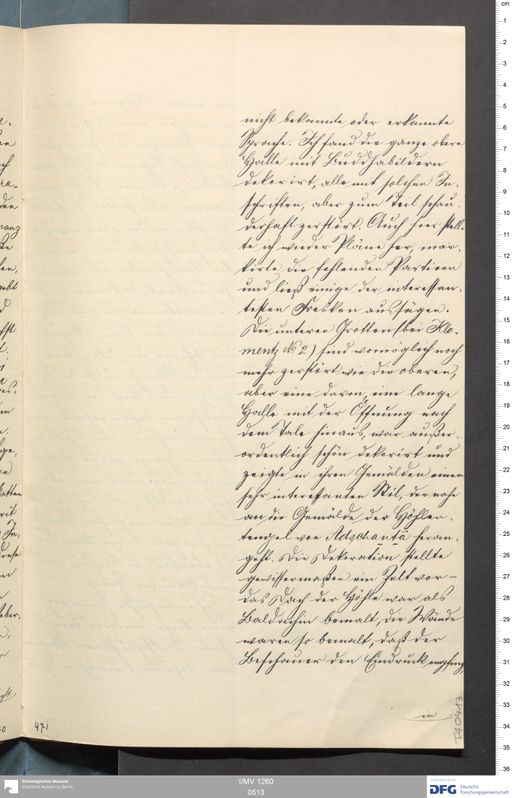 nicht bekannte oder erkannte
Sprache. Ich fand die ganze obere
Halle mit Buddhabildern
dekorirt, alle mit solchen In-
schriften, aber zum Teil schau-
derhaft zerstört. Auch hier stell-
te ich wieder Pläne her, mar-
kirte die fehlenden Partieen
und ließ einige der interessan-
testen Fresken aussägen.
Die unteren Grotten (bei Kle-
mentz № 2) sind womöglich noch
mehr zerstört wie die oberen,
aber eine davon, eine lange
Halle mit der Öffnung nach
dem Tale hinaus, war außer-
ordentlich schön dekorirt und
zeigte in ihren Gemälden einen
sehr interessanten Stil, der nahe
an die Gemälde der Höhlen-
tempel von Adschantā heran-
geht. Die Dekoration stellte
gewissermaßen ein Zelt vor –
das Dach der Höhle war als
Baldachin bemalt, die Wände
waren so bemalt, daß der
Beschauer den Eindruck empfing,
in
471
TA 0413
Ethnologisches Museum
Staatliche Museen zu Berlin
I/MV 1260
0513
Gefördert durch
DFG Deutsche
Forschungsgemeinschaft